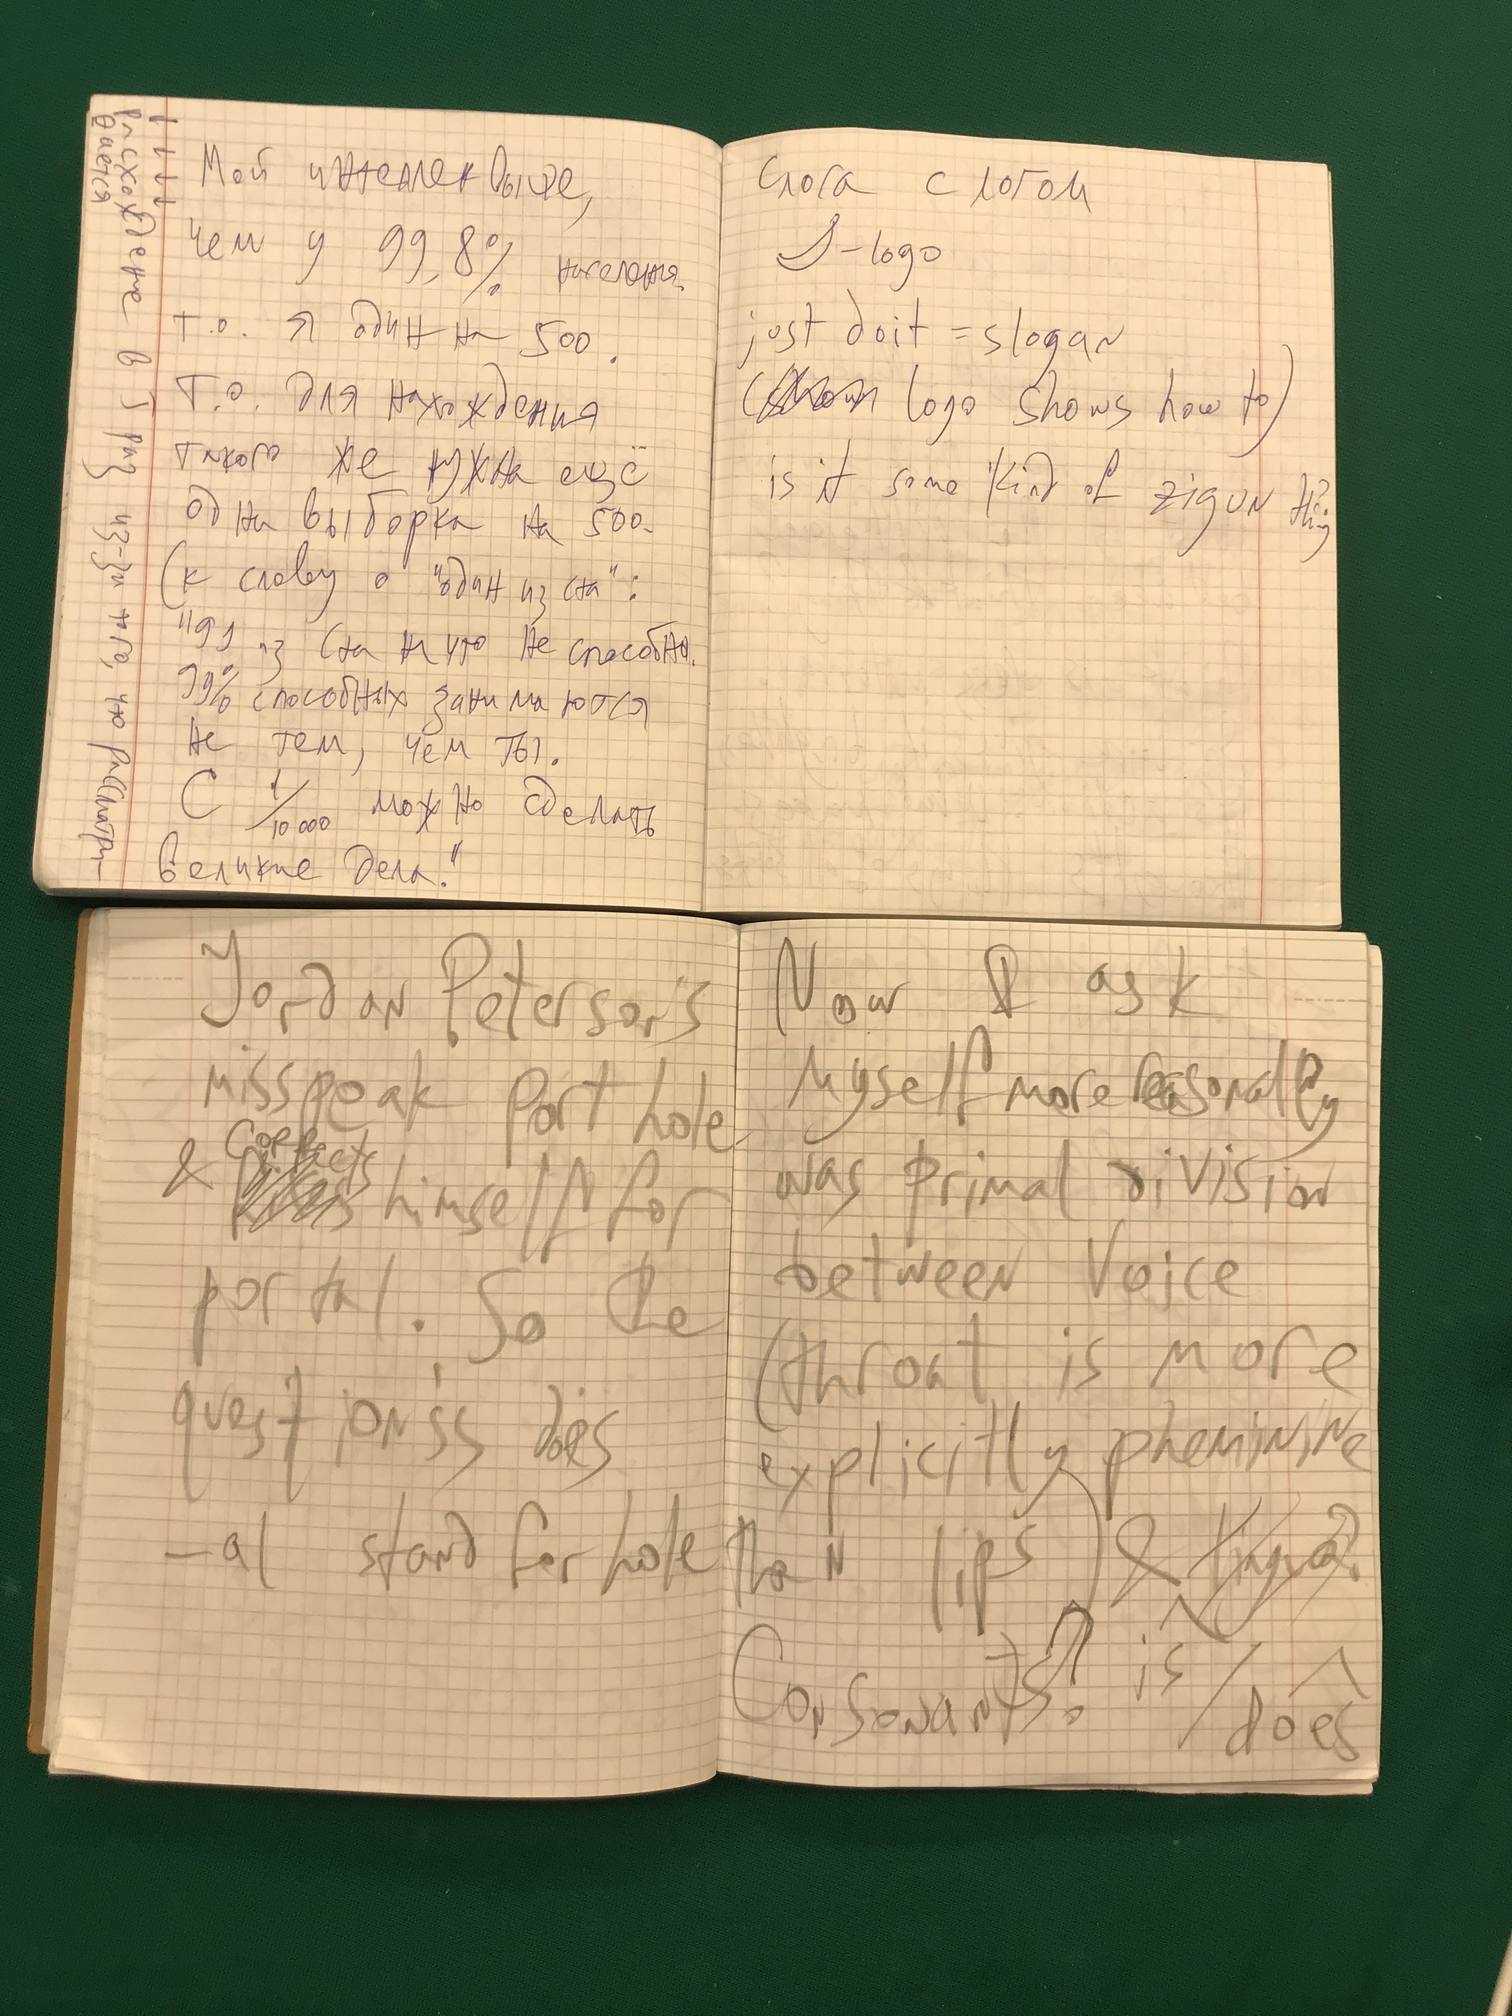 Мой интеллек выше,
чем у 99,8% населения.
т.о. я один на 500.
Т.о. для нахождения
такого же нужна ещё
одна выборка на 500.
(к слову о "один из ста":
"99 из ста ни что не способны.
99% способных занимаются
не тем, чем ты.
С 1/10 000 можно сделать
великие дела."
Расхождение в 5 раз из-за того, что рассматри-
дается
Слога с логом
-logo
just doit = slogan
( logo shows how to)
is it some kind of zigun thing?
Yordan Peterson's
misspeak porthole
& corrects himself for
portal. So the
question'ss does
-al stand for hole
Now I ask
Myself more reasonally
was primal division
between Voice
(throat is more
explicitly pheminine
than lips) &
Consonants? is / does